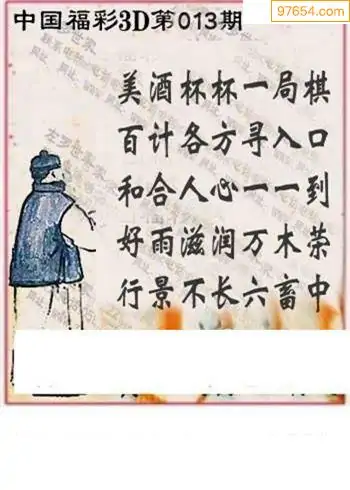 97654.com
中国福彩3D第013期
美酒杯杯一局棋
百计各方寻入口
和合人心一一到
好雨滋润万木荣
行景不长六畜中